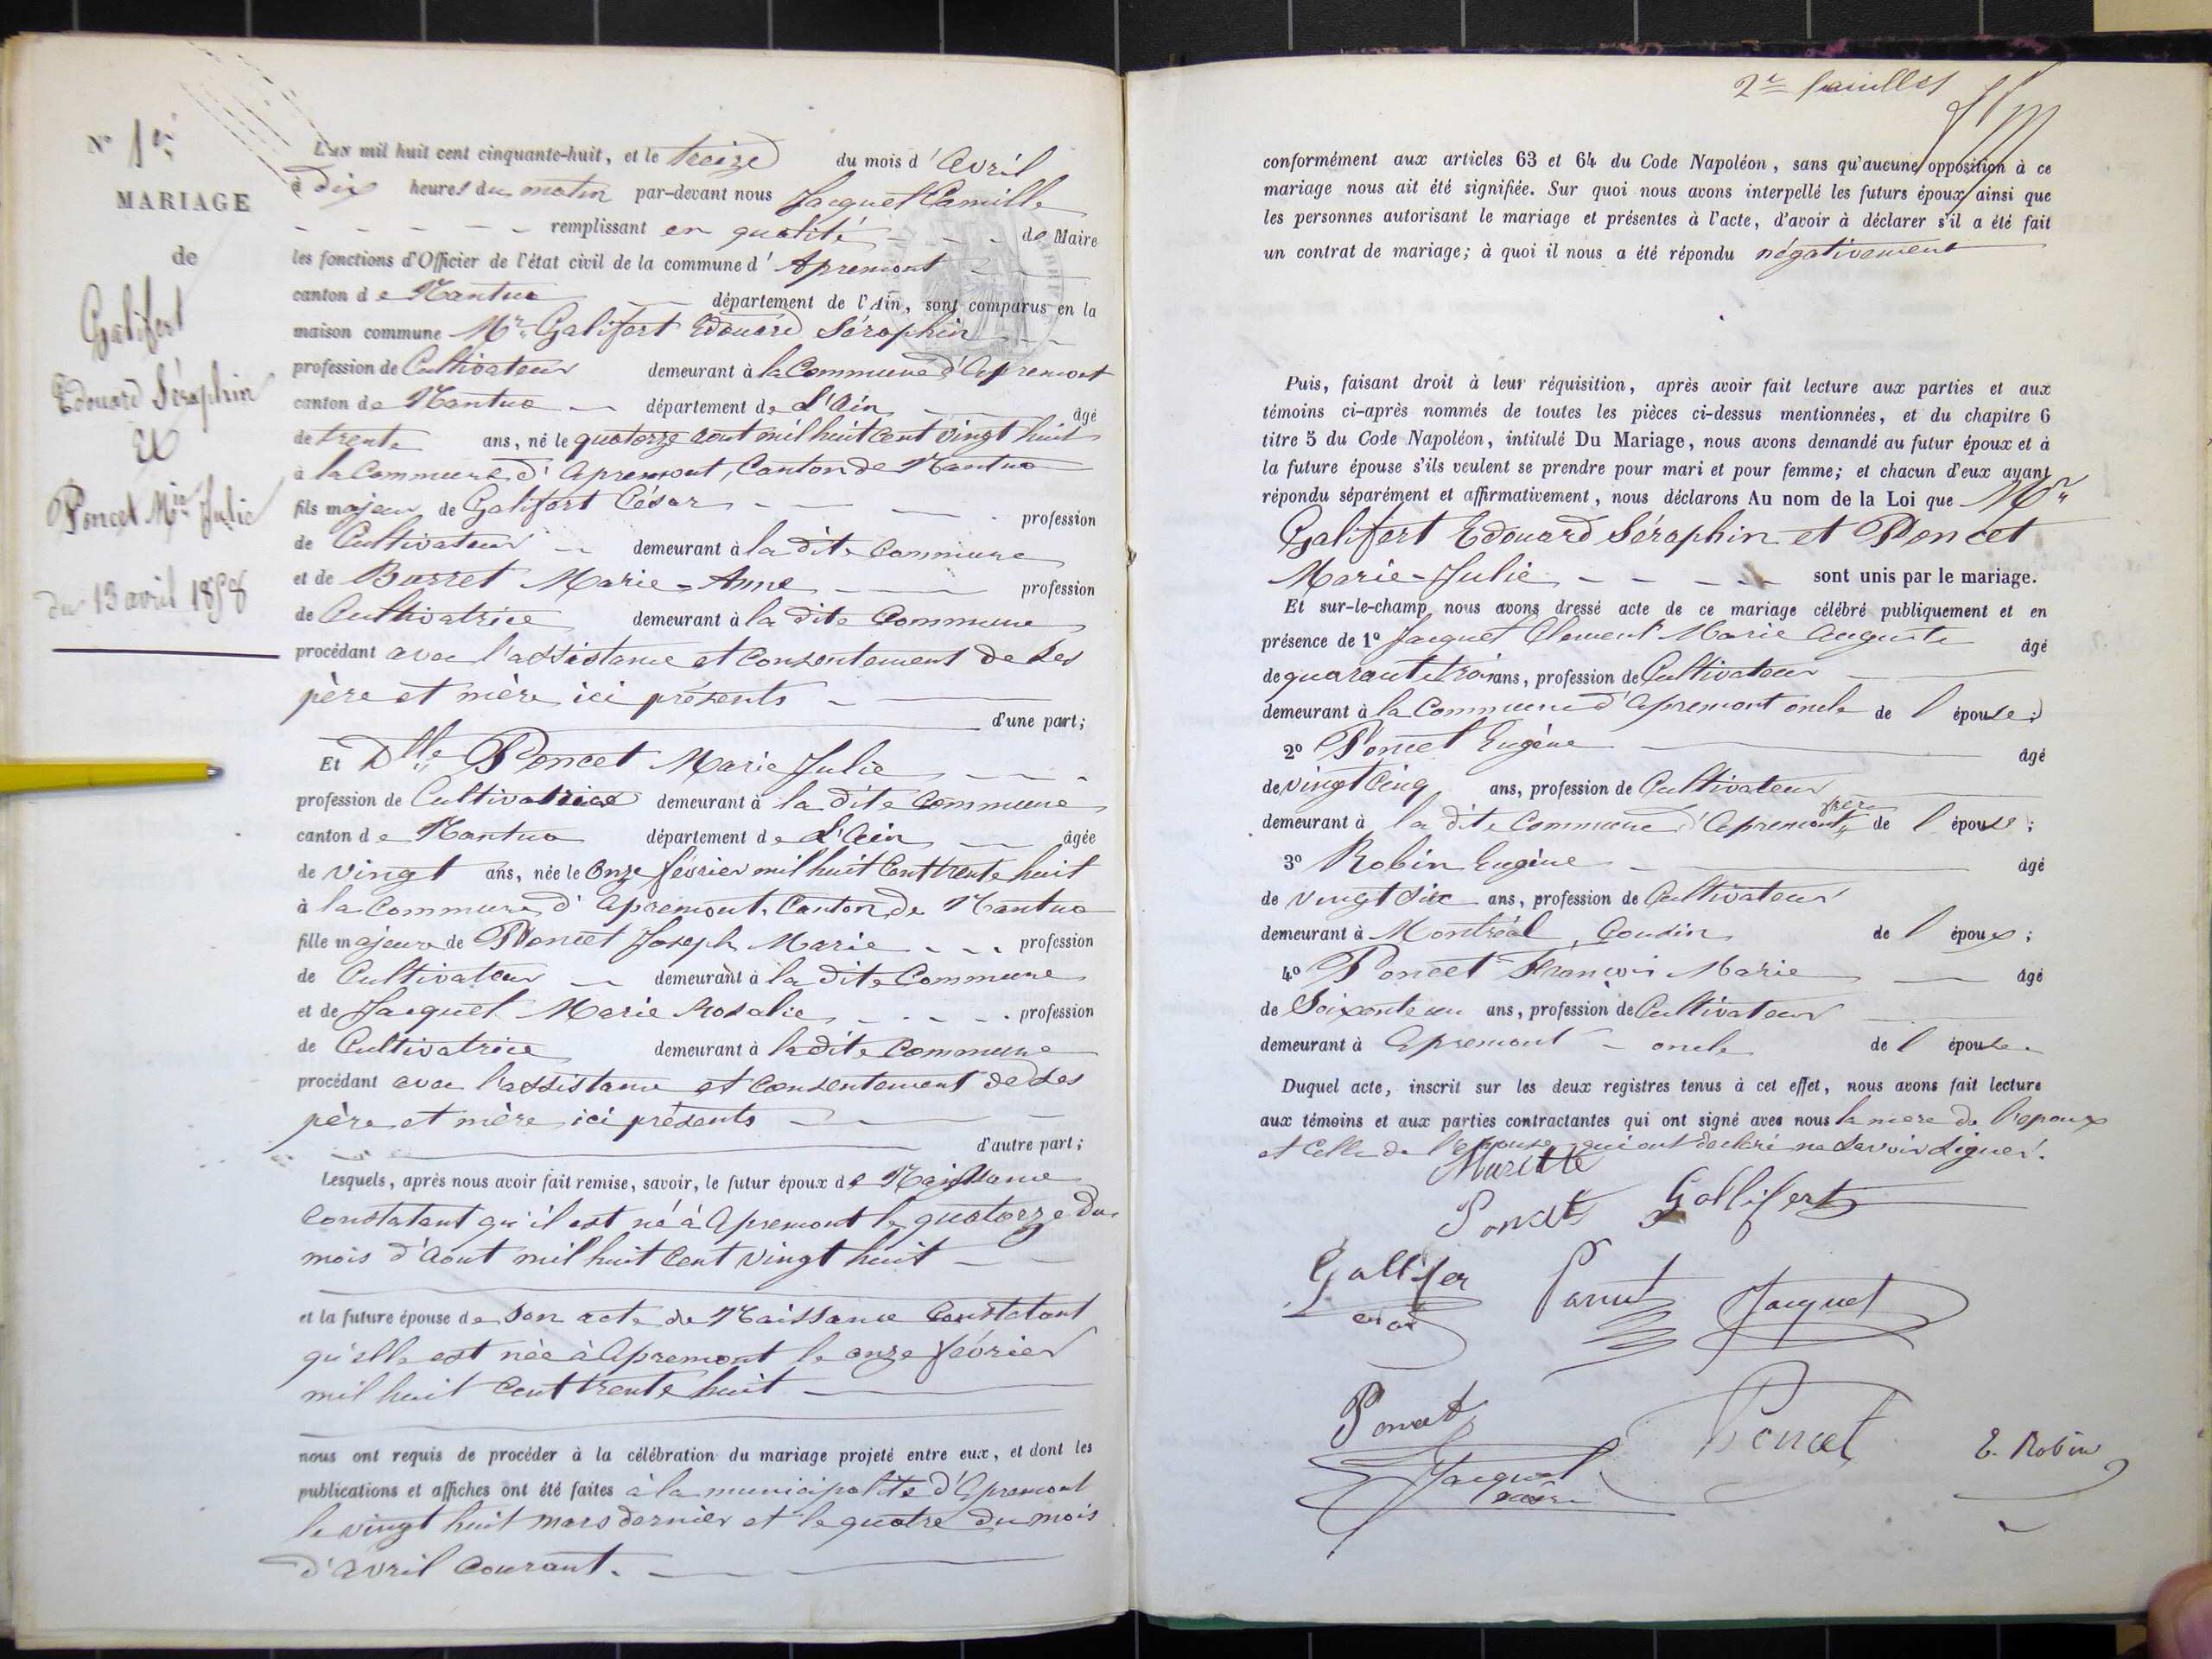 N° 1er
MARIAGE
de
Galifert
Edouard Séraphin
Et
Poncet Mie Julie
du 13 avril 1858
L'an mil huit cent cinquante-huit, et le treize du mois d'Avril
à dix heures du matin par-devant nous Jacquet Camille
remplissant en qualité de Maire
les fonctions d'Officier de l'état civil de la commune d'Apremont
canton de Nantua département de l'Ain, sont comparus en la
maison commune Mr Galifert Edouard Séraphin
profession de Cultivateur demeurant à la Commune d'Apremont
canton de Nantua département de L'Ain âgé
de trente ans, né le quatorze aout mil huit Cent vingt huit
à la Commune d'Apremont, Canton de Nantua
fils majeur de Galifert César profession
de Cultivateur demeurant à la dite Commune
et de Burret Marie-Anne profession
de Cultivatrice demeurant à la dite Commune
procédant avec l'assistance et Consentement de Ses
père et mère ici présents
d'une part;
Et Dlle Poncet Marie Julie
profession de Cultivatrice demeurant à la dite Commune
canton de Nantua département de L'Ain âgée
de vingt ans, née le Onze février mil huit Cent trente huit
à la Commune d'Apremont, Canton de Nantua
fille majeure de Poncet Joseph Marie profession
de Cultivateur demeurant à la dite Commune
et de Jacquet Marie Rosalie profession
de Cultivatrice demeurant à la dite Commune
procédant avec l'assistance et Consentement de Ses
père et mère ici présents
d'autre part;
Lesquels, après nous avoir fait remise, savoir, le futur époux de Naissance
Constatant qu'il est né à Apremont le quatorze du
mois d'Aout mil huit Cent vingt huit
et la future épouse de Son acte de Naissance Constatant
qu'elle est née à Apremont le onze février
mil huit Cent trente huit
nous ont requis de procéder à la célébration du mariage projeté entre eux, et dont les
publications et affiches ont été faites à la municipalité d'Apremont
le vingt huit mars dernier et le quatre du mois
d'avril Courant.
2e feuillet
conformément aux articles 63 et 64 du Code Napoléon, sans qu'aucune opposition à ce
mariage nous ait été signifiée. Sur quoi nous avons interpellé les futurs époux ainsi que
les personnes autorisant le mariage et présentes à l'acte, d'avoir à déclarer s'il a été fait
un contrat de mariage; à quoi il nous a été répondu négativement
Puis, faisant droit à leur réquisition, après avoir fait lecture aux parties et aux
témoins ci-après nommés de toutes les pièces ci-dessus mentionnées, et du chapitre 6
titre 5 du Code Napoléon, intitulé Du Mariage, nous avons demandé au futur époux et à
la future épouse s'ils veulent se prendre pour mari et pour femme; et chacun d'eux ayant
répondu séparément et affirmativement, nous déclarons Au nom de la Loi que Mr
Galifert Edouard Séraphin et Poncet
Marie-Julie sont unis par le mariage.
Et sur-le-champ nous avons dressé acte de ce mariage célébré publiquement et en
présence de 1° Jacquet Clement Marie Auguste âgé
de quarante trois ans, profession de Cultivateur
demeurant à la Commune d'Apremont oncle de l'épouse;
2° Poncet Eugène âgé
de vingt Cinq ans, profession de Cultivateur
demeurant à la dite Commune d'Apremont frere de l'épouse;
3° Robin Eugène âgé
de vingt Six ans, profession de Cultivateur
demeurant à Montréal, Cousin de l'époux;
4° Poncet François Marie âgé
de Soixante un ans, profession de Cultivateur
demeurant à Apremont oncle de l'épouse.
Duquel acte, inscrit sur les deux registres tenus à cet effet, nous avons fait lecture
aux témoins et aux parties contractantes qui ont signé avec nous la mere de l'epoux
et Celle de l'epouse qui ont declaré ne Savoir Signer.
Poncet Gallifert
Gallifer Poncet Jacquet
Poncet Poncet E. Robin
Jacquet
maire